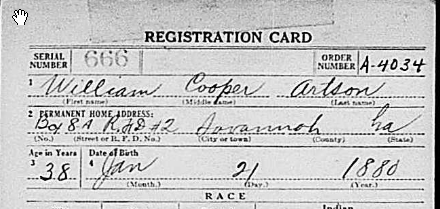 REGISTRATION CARD
SERIAL NUMBER 666 ORDER NUMBER A-4034
1 William Cooper Artson
(First name) (Middle name) (Last name)
2 PERMANENT HOME ADDRESS:
Box 8A R.F.D. #2 Savannah Ga
(No.) (Street or R. F. D. No.) (City or town) (County) (State)
Age in Years Date of Birth
3 38 4 Jan 21 1880
(Month.) (Day.) (Year.)
RACE
Indian